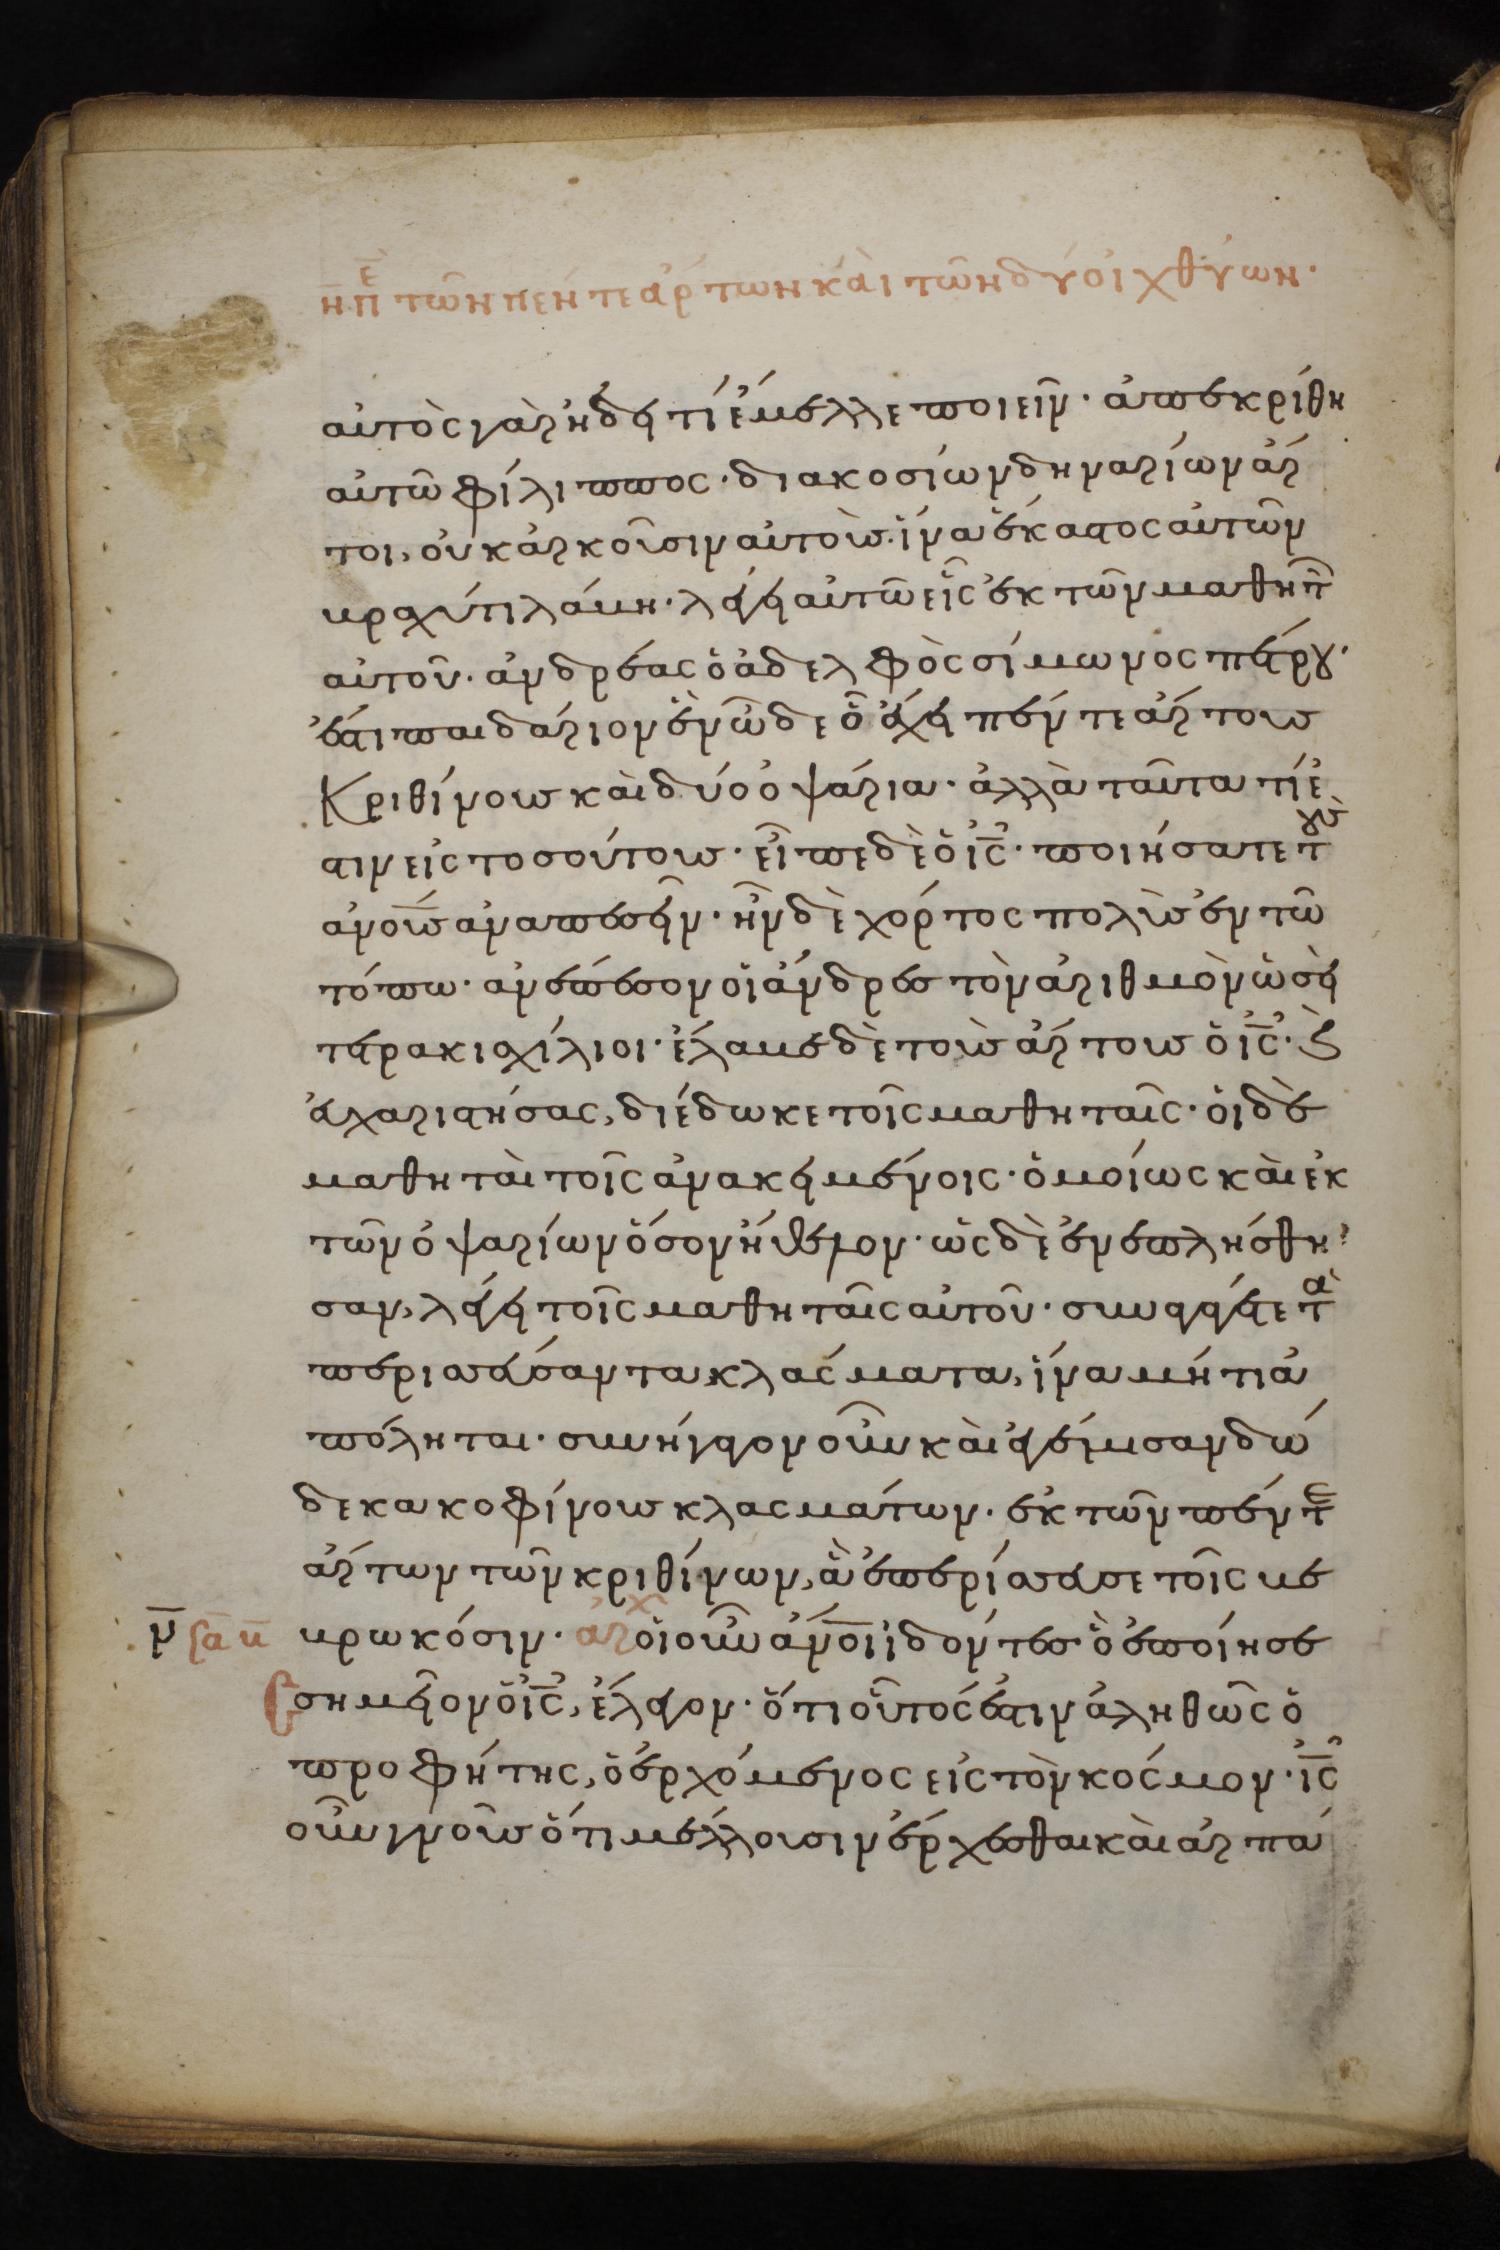 η πε̅ τῶν πέντε ἄρτων καὶ τῶν δύο ἰχθύων·
αὐτὸς γὰρ ἤδει τί ἔμελλε ποιεῖν· ἀπεκρίθη
αὐτῶ φίλιππος· διακοσίων δηναρίων ἄρ
τοι, οὐκ ἀρκοῦσιν αὐτοῖς· ἵνα ἕκαστος αὐτῶν
βραχύ τι λάβη· λέγει αὐτῶ εἷς ἐκ τῶν μαθητ̅
αὐτοῦ· ἀνδρέας ὁ ἀδελφὸς σίμωνος πέτρου·
ἔστι παιδάριον ἓν ὧδε ὃ ἔχει πέντε ἄρτους
κριθίνους καὶ δύο ὀψάρια· ἀλλὰ ταῦτα τί ἐ
στιν εἰς τοσούτους· εἶπε δὲ ὁ ις̅· ποιήσατε τοὺς
ἀνους̅ ἀναπεσεῖν· ἦν δὲ χόρτος πολὺς ἐν τῶ
τόπω· ἀνέπεσον οἱ ἄνδρες τὸν ἀριθμὸν ὡσεὶ
πεντακισχίλιοι· ἔλαβε δὲ τοὺς ἄρτους ὁ ις̅· καὶ
εὐχαριστήσας, διέδωκε τοῖς μαθηταῖς· οἱ δὲ
μαθηταὶ τοῖς ἀνακειμένοις· ὁμοίως καὶ ἐκ
τῶν ὀψαρίων ὅσον ἤθελον· ὡς δὲ ἐνεπλήσθη
σαν, λέγει τοῖς μαθηταῖς αὐτοῦ· συναγάγετε τὰ
περισσεύσαντα κλάσματα, ἵνα μή τι ἀ
πόληται· συνήγαγον οὖν καὶ ἐγέμισαν δώ
δεκα κοφίνους κλασμάτων· ἐκ τῶν πέντε
ἄρτων τῶν κριθίνων, ἃ ἐπερίσσευσε τοῖς βε
ν̅ βρωκόσιν· ἀρχ οἱ οὖν ἀνοι̅ ἰδόντες ὃ ἐποίησε
σημεῖον ὁ ις̅, ἔλεγον· ὅτι οὗτός ἐστιν ἀληθῶς ὁ
προφήτης, ὁ ἐρχόμενος εἰς τὸν κόσμον· ις̅
οὖν γνοὺς ὅτι μέλλουσιν ἔρχεσθαι καὶ ἁρπά